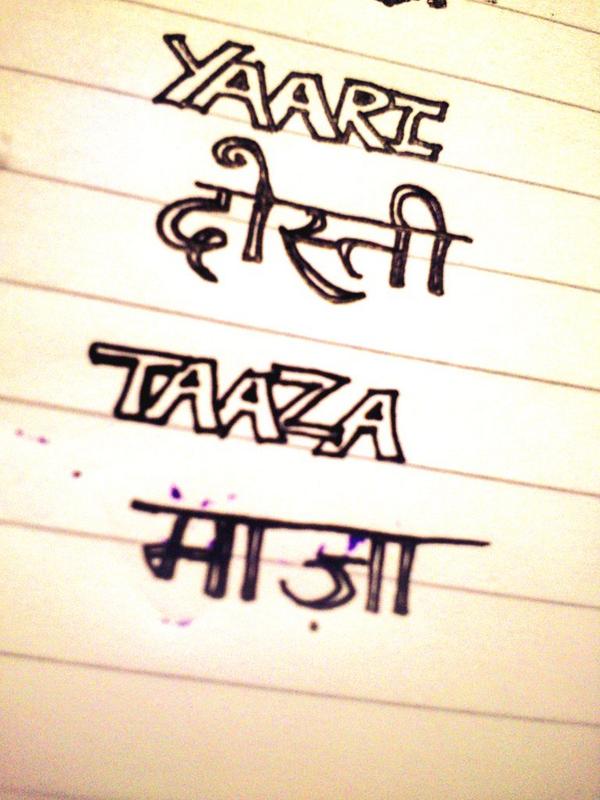 YAARI
दोस्ती
TAAZA
माज़ा